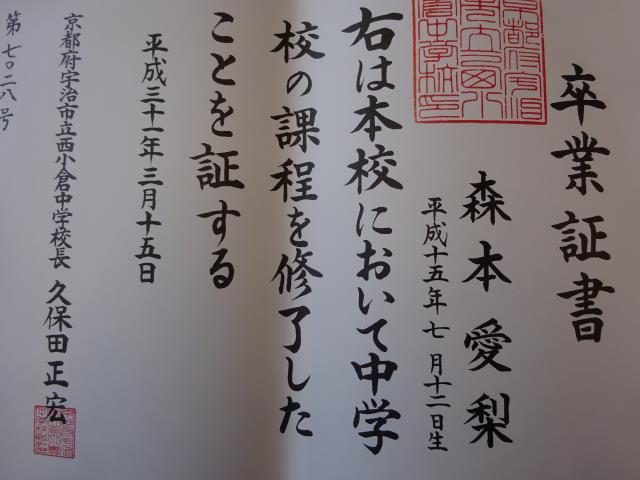 卒業証書
森本愛梨
平成十五年七月十二日生
右は本校において中学
校の課程を修了した
ことを証する
平成三十一年三月十五日
京都府宇治市立西小倉中学校長 久保田正宏
第七〇二八号